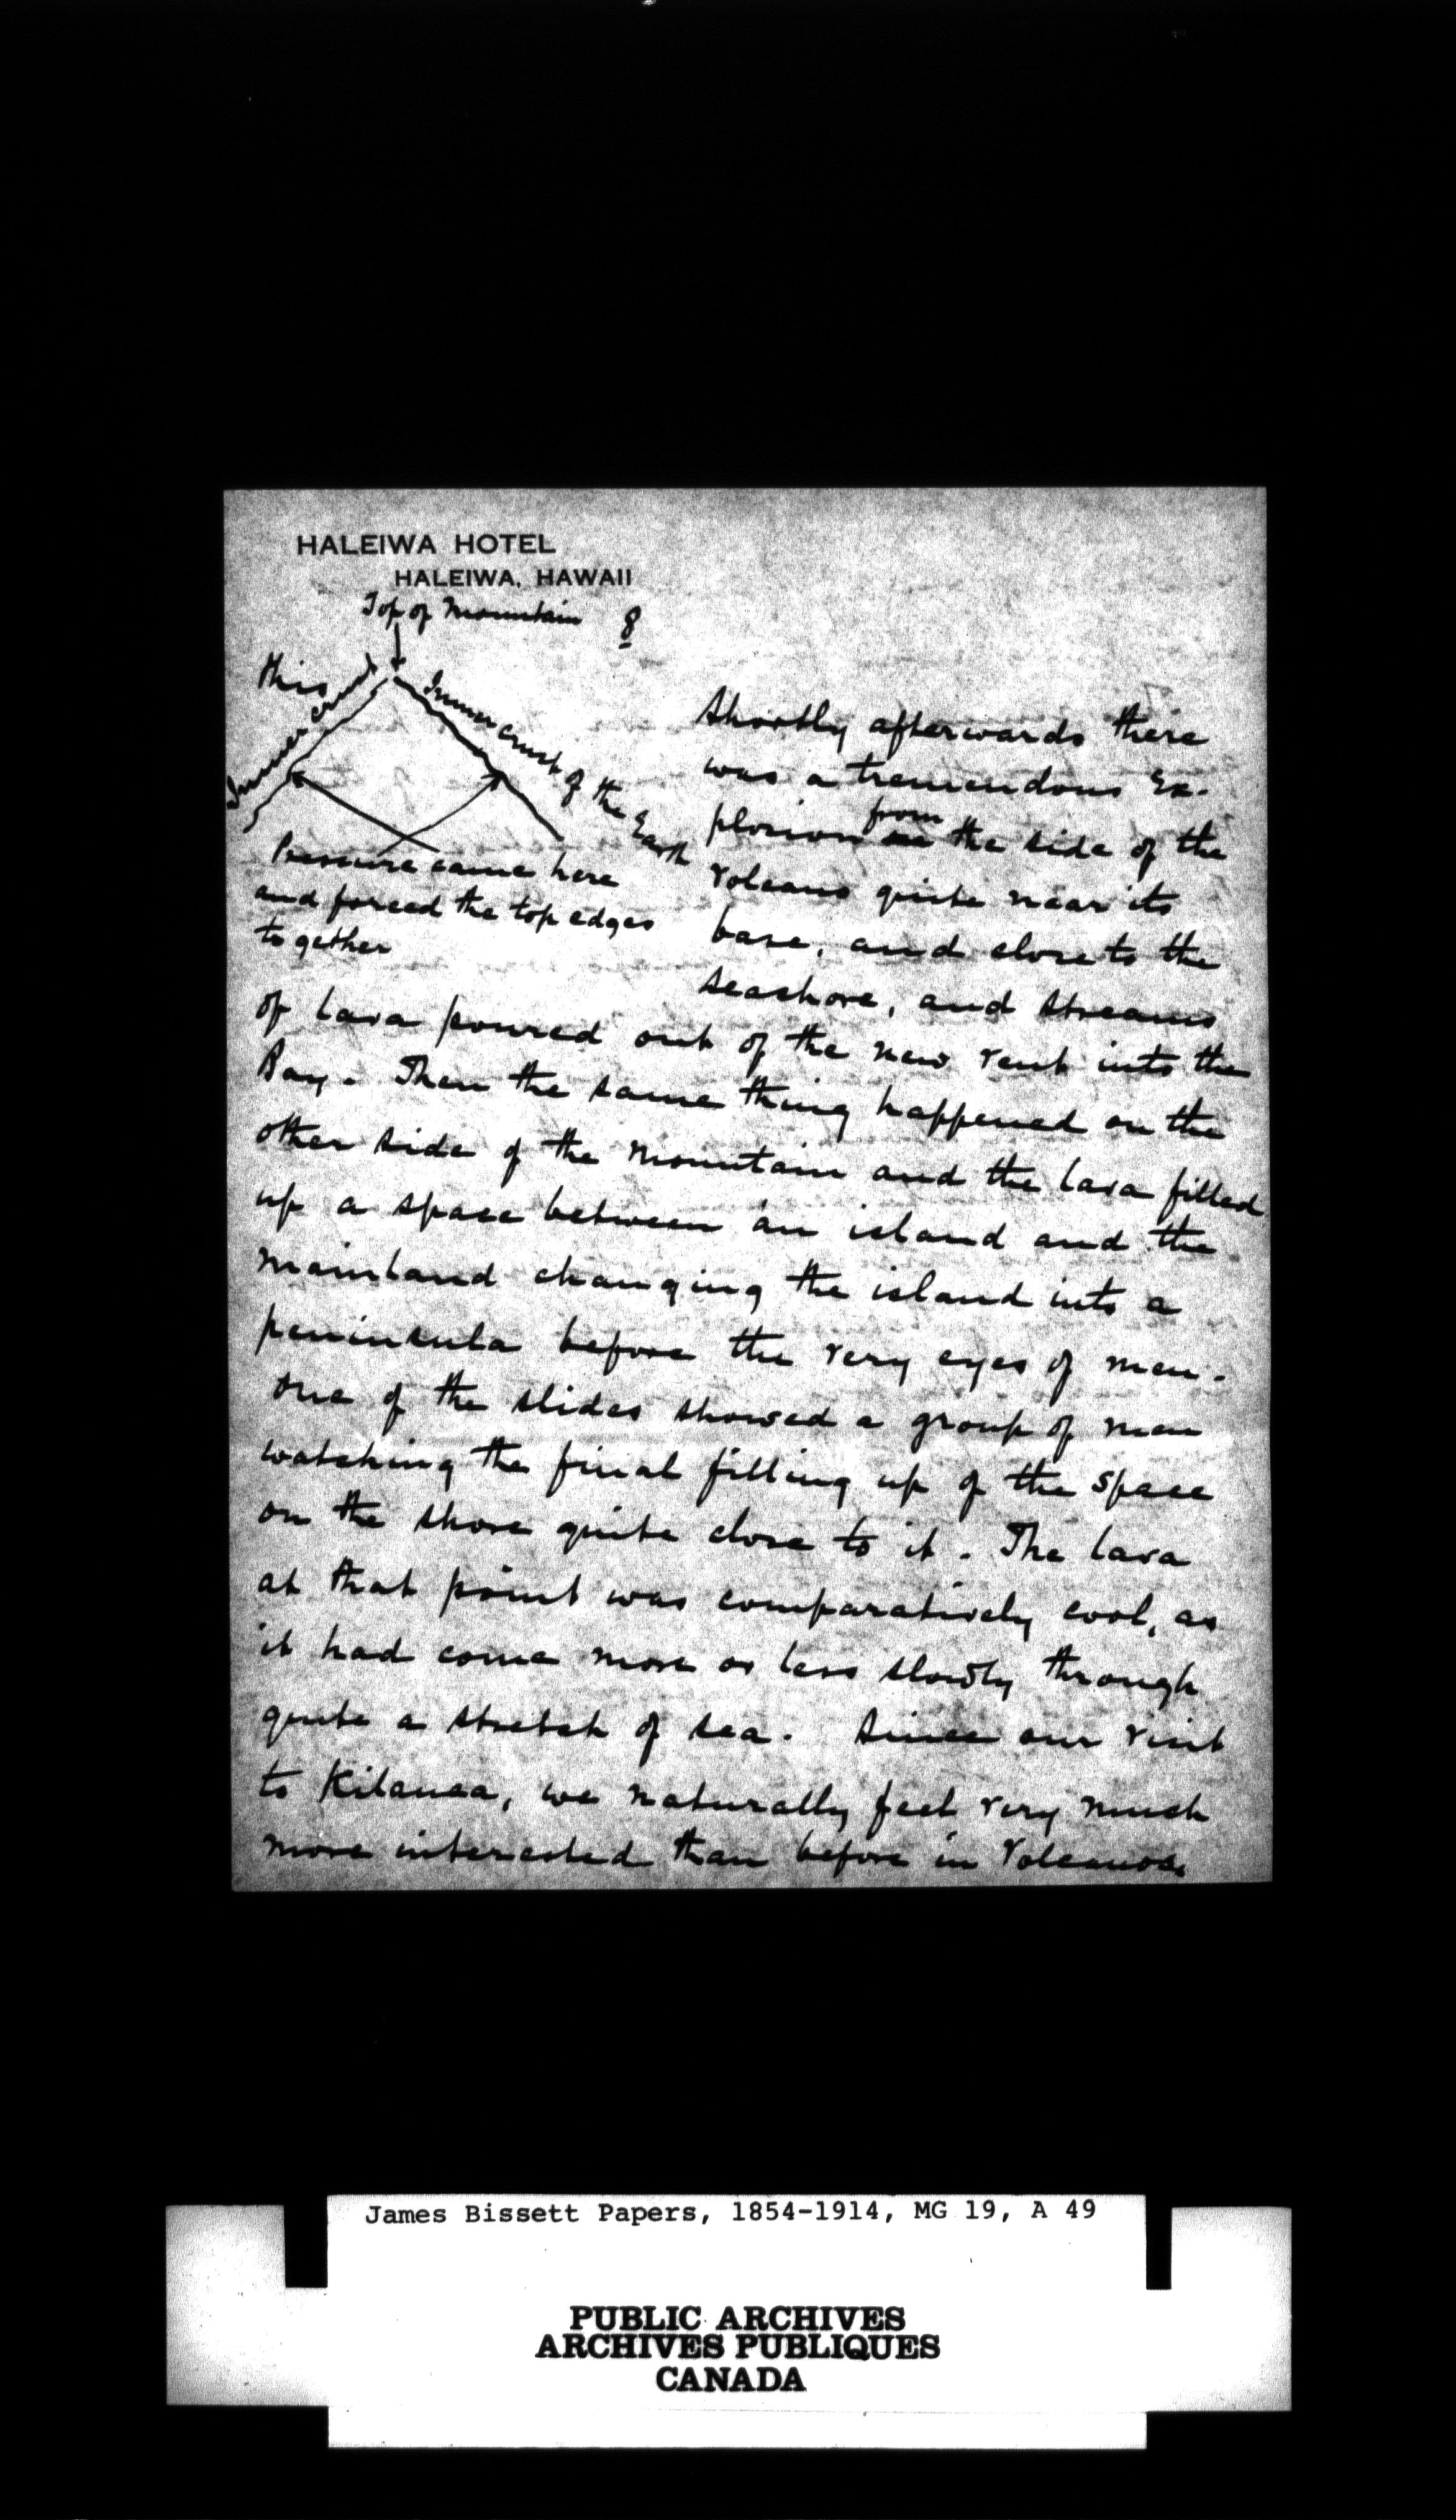 HALEIWA HOTEL
HALEIWA, HAWAII
Top of Mountain 8
this
Inner crust
Inner crust of the Earth
Pressure came here
and forced the top edges
together
Shortly afterwards there
was a tremendous Ex-
plosion from the side of the
Volcano quite near its
base, and close to the
seashore, and streams
of lava poured out of the new vent into the
Bay. Then the same thing happened on the
other side of the Mountain and the lava filled
up a space between an island and the
mainland changing the island into a
peninsula before the very eyes of men.
One of the slides showed a group of men
watching the final filling up of the space
on the shore quite close to it. The lava
at that point was comparatively cool, as
it had come more or less slowly through
quite a stretch of sea. Since our visit
to Kilauea, we naturally feel very much
more interested than before in Volcanoes
James Bissett Papers, 1854-1914, MG 19, A 49
PUBLIC ARCHIVES
ARCHIVES PUBLIQUES
CANADA